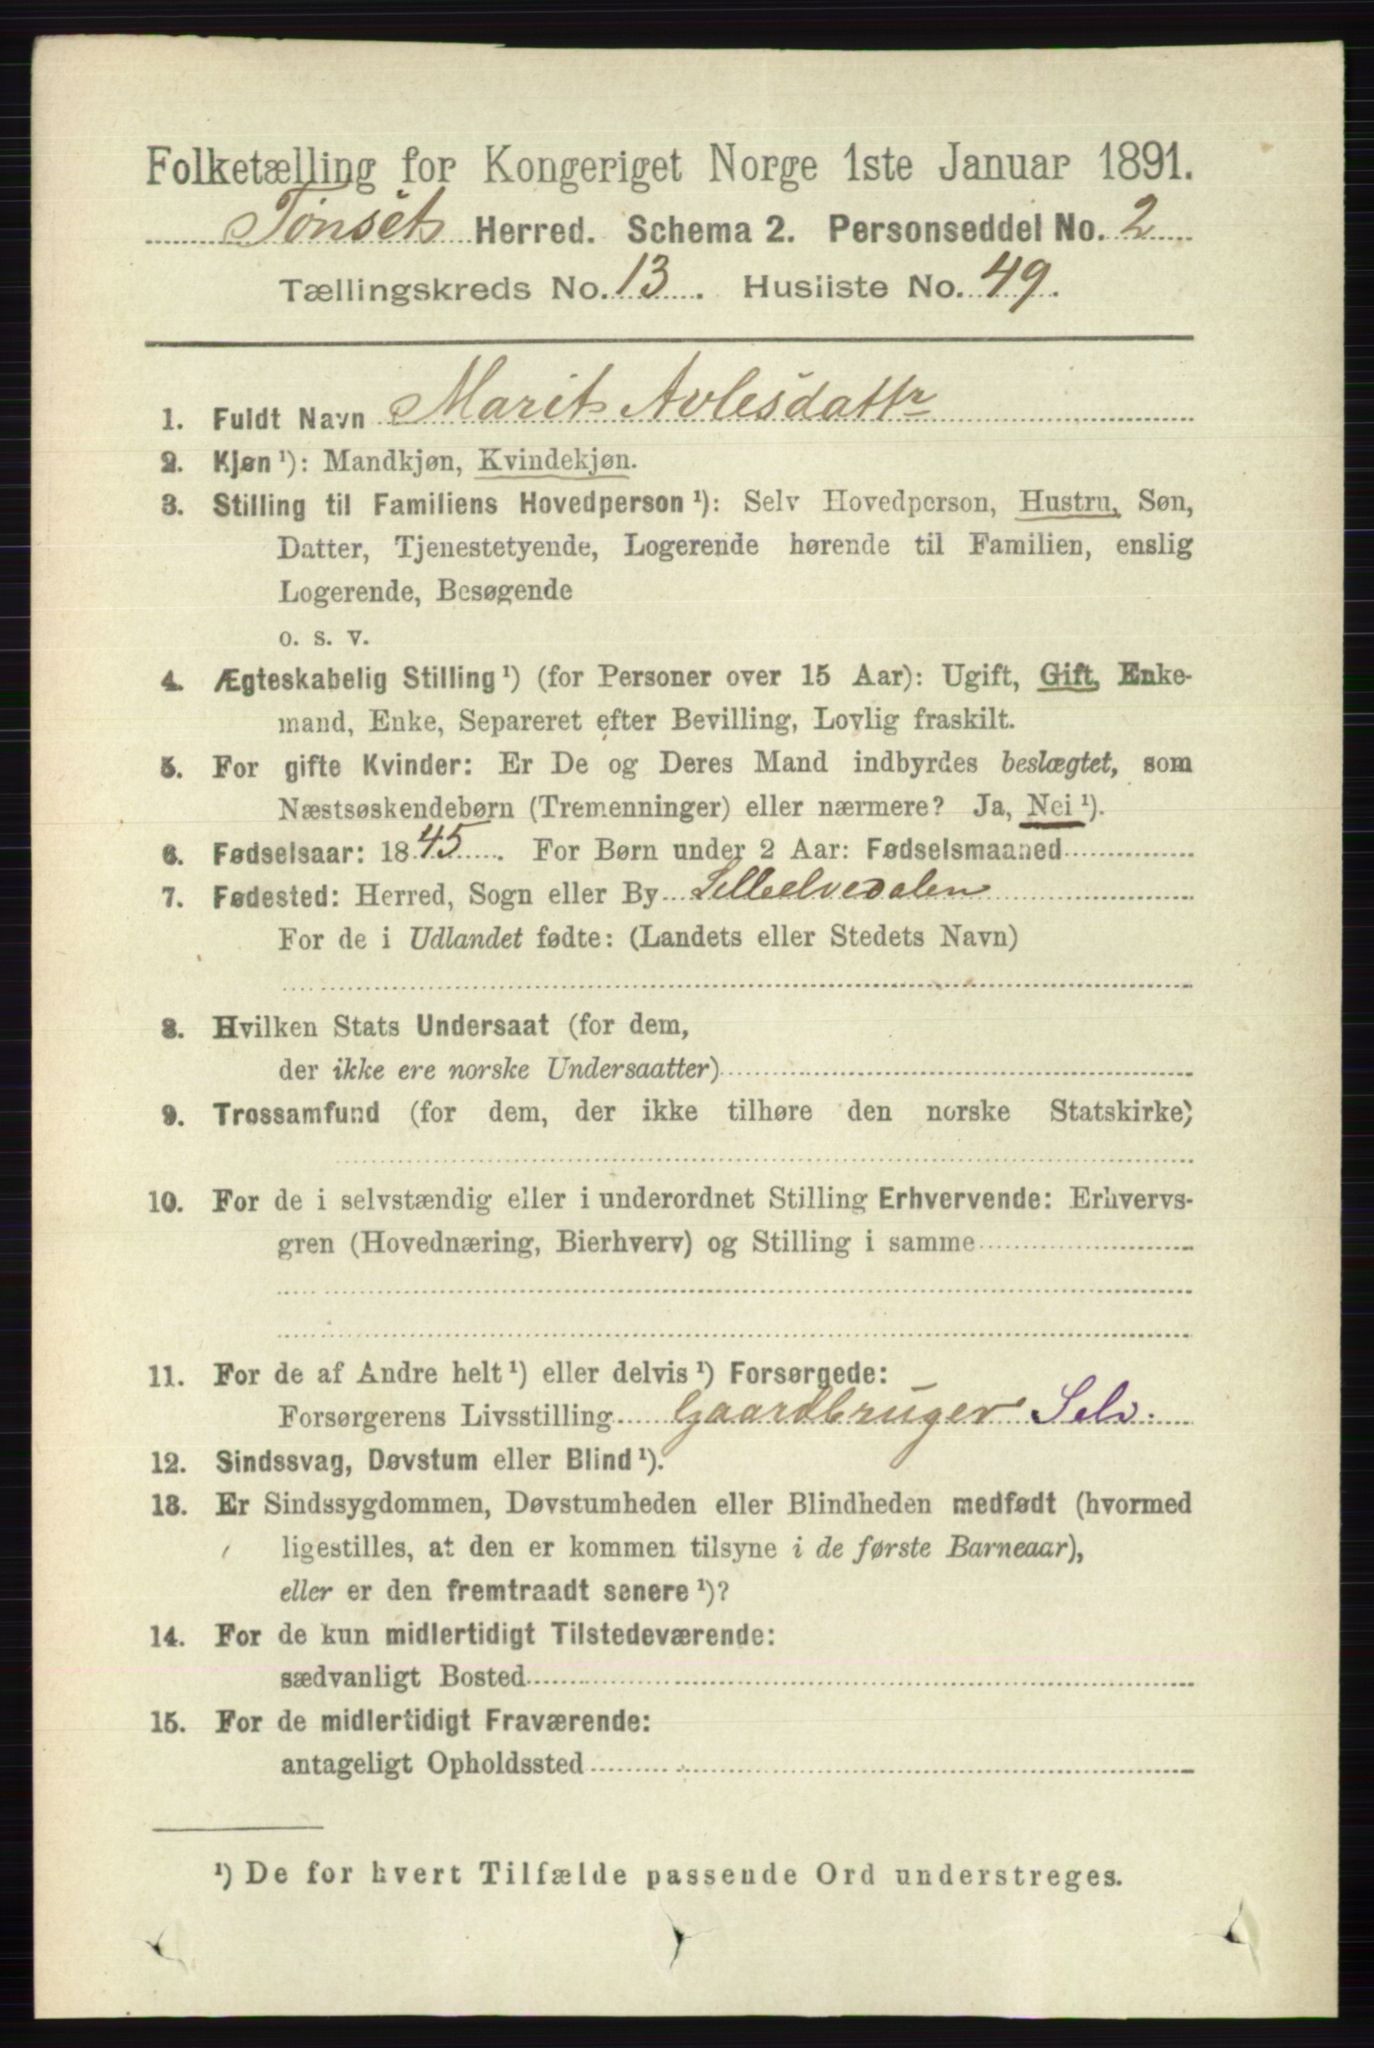 Folketælling for Kongeriget Norge 1ste Januar 1891.
Tønset Herred. Schema 2. Personseddel No. 2
Tællingskreds No. 13. Husliste No. 49.
1. Fuldt Navn Marit Avlesdattr
2. Kjøn ¹): Mandkjøn, Kvindekjøn.
3. Stilling til Familiens Hovedperson ¹): Selv Hovedperson, Hustru, Søn,
Datter, Tjenestetyende, Logerende hørende til Familien, enslig
Logerende, Besøgende
o. s. v.
4. Ægteskabelig Stilling ¹) (for Personer over 15 Aar): Ugift, Gift, Enke-
mand, Enke, Separeret efter Bevilling, Lovlig fraskilt.
5. For gifte Kvinder: Er De og Deres Mand indbyrdes beslægtet, som
Næstsøskendebørn (Tremenninger) eller nærmere? Ja, Nei ¹).
6. Fødselsaar: 1845. For Børn under 2 Aar: Fødselsmaaned
7. Fødested: Herred, Sogn eller By Lilleelvedalen
For de i Udlandet fødte: (Landets eller Stedets Navn)
8. Hvilken Stats Undersaat (for dem,
der ikke ere norske Undersaatter)
9. Trossamfund (for dem, der ikke tilhøre den norske Statskirke)
10. For de i selvstændig eller i underordnet Stilling Erhvervende: Erhvervs-
gren (Hovednæring, Bierhverv) og Stilling i samme
11. For de af Andre helt ¹) eller delvis ¹) Forsørgede:
Forsørgerens Livsstilling Gaardbruger Selv.
12. Sindssvag, Døvstum eller Blind ¹).
13. Er Sindssygdommen, Døvstumheden eller Blindheden medfødt (hvormed
ligestilles, at den er kommen tilsyne i de første Barneaar),
eller er den fremtraadt senere ¹)?
14. For de kun midlertidigt Tilstedeværende:
sædvanligt Bosted
15. For de midlertidigt Fraværende:
antageligt Opholdssted
¹) De for hvert Tilfælde passende Ord understreges.